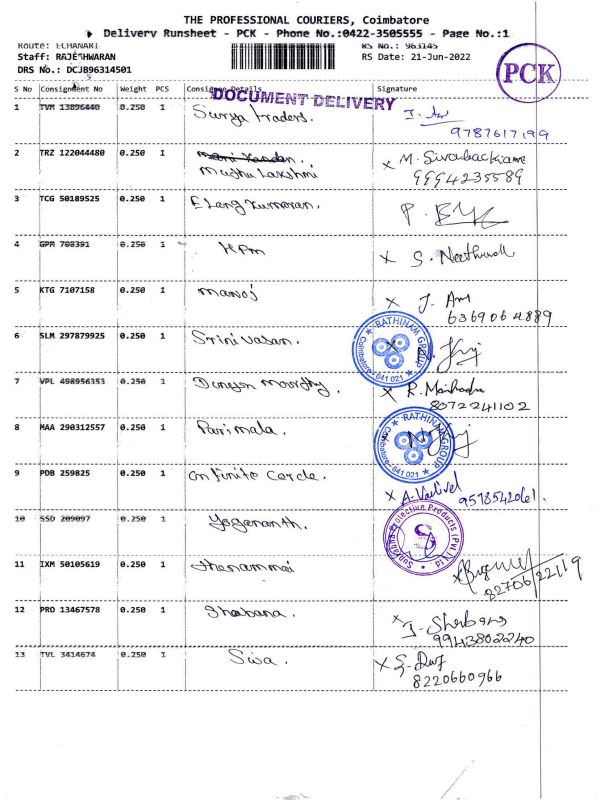 THE PROFESSIONAL COURIERS, Coimbatore
Delivery Runsheet - PCK - Phone No.:0422-3505555 - Page No.:1
Route: ECHANARI
RS No.: 963145
Staff: RAJESHWARAN
RS Date: 21-Jun-2022
DRS No.: DCJB96314501
PCK
S No Consignment No Weight PCS Consignee Details Signature
DOCUMENT DELIVERY
1 TVM 13896440 0.250 1 Surya traders.
9787617199
2 TRZ 122044480 0.250 1 Mani Kandan.
Madhu Lakshmi
M. Sivabackiam
9994235589
3 TCG 50189525 0.250 1 Elang kumaran.
4 GPM 708391 0.250 1 KPM
5 KTG 7107158 0.250 1 Manoj
6369064889
6 SLM 297879925 0.250 1 Srinivasan.
RATHINAM GROUP
Coimbatore - 641 021
7 VPL 498956353 0.250 1
8072241102
8 MAA 290312557 0.250 1 Parimala.
RATHINAM GROUP
Coimbatore - 641 021
9 PDB 259825 0.250 1 Infinite Cercle.
A. Vadivel
9578542061.
10 SSD 209097 0.250 1 Yogananth.
S
11 IXM 50105619 0.250 1 Thenammai
82706/22119
12 PRO 13467578 0.250 1 Shabana.
9943802240
13 TVL 3414674 0.250 1 Siva.
8220660966